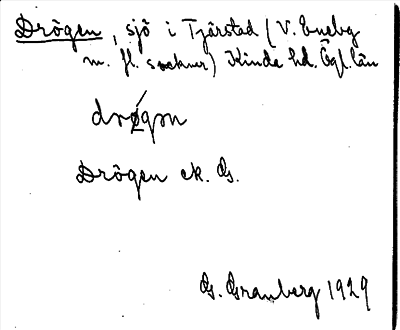 Drögen, sjö i Tjärstad (V. Eneby
m. fl. socknar) Kinda hd. Ögl. län
drøgən
Drögen ek. G.
G. Granberg 1929